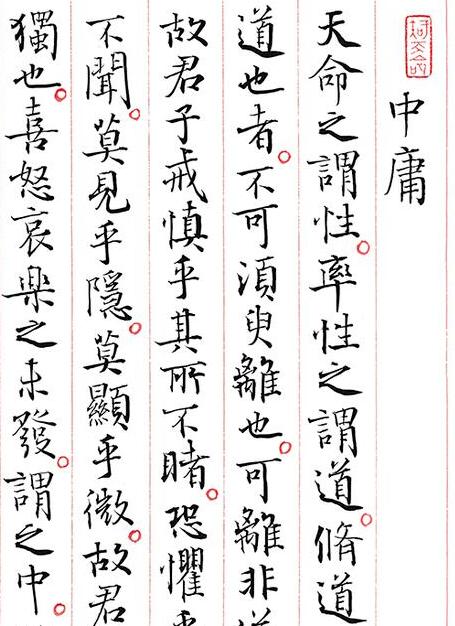 中庸
天命之謂性。率性之謂道。脩道
道也者。不可須臾離也。可離非
故君子戒慎乎其所不睹。恐懼
不聞。莫見乎隱。莫顯乎微。故君
獨也。喜怒哀樂之未發。謂之中。